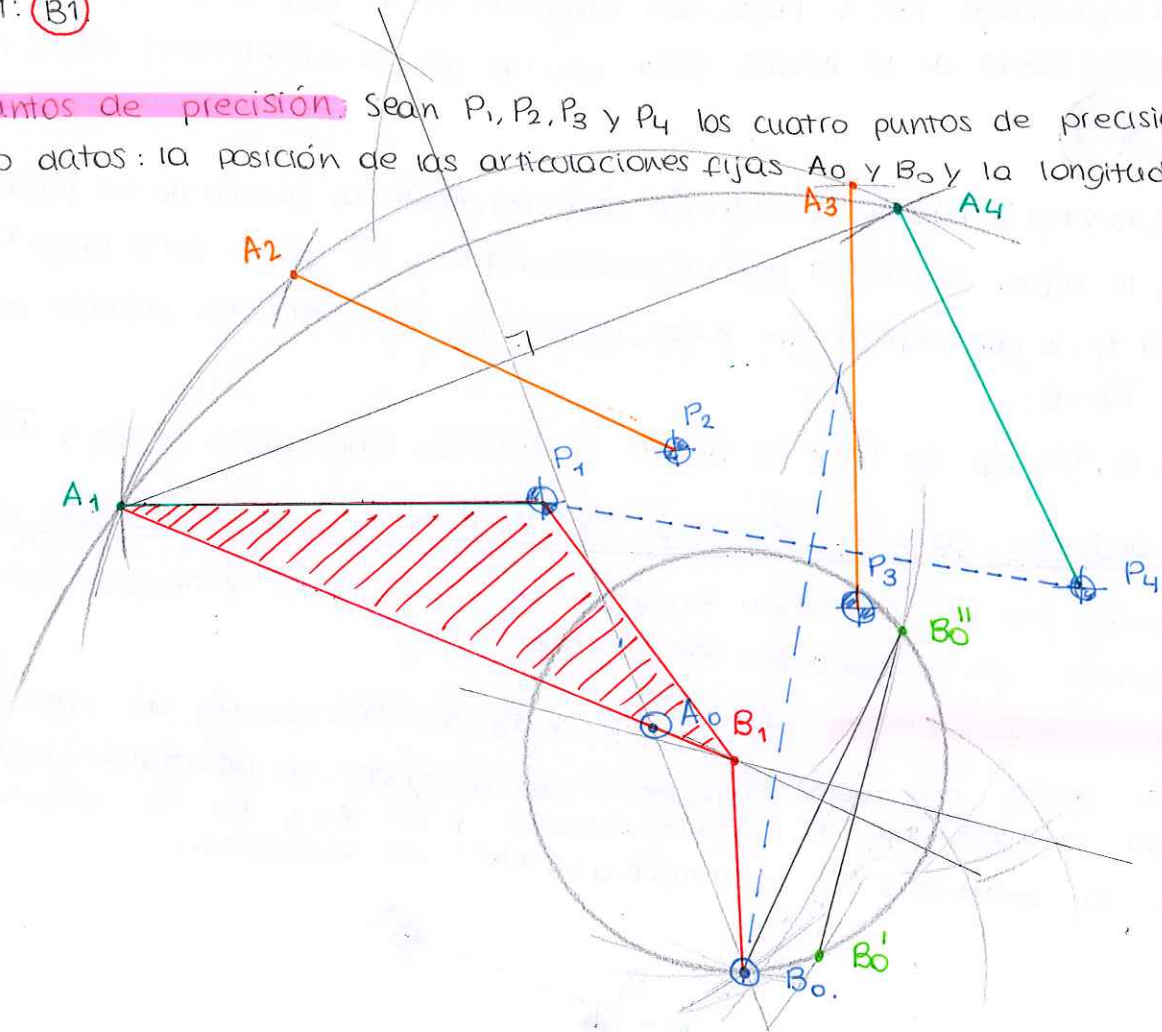 : B1
ntos de precisión. Sean P1, P2, P3 y P4 los cuatro puntos de precisi
o datos: la posición de las articulaciones fijas A0 y B0 y la longitud
A3
A4
A2
P2
P1
A1
P3
P4
B0''
A0
B1
B0'
B0.